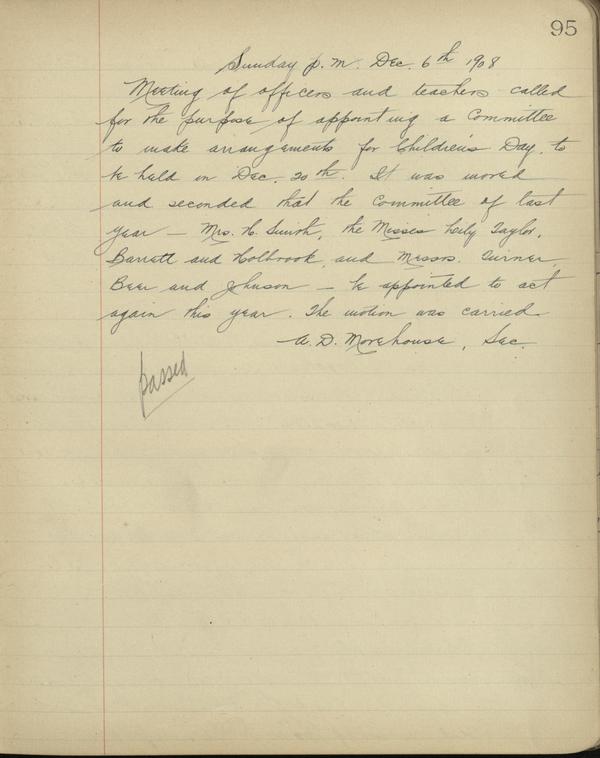 95
Sunday p.m. Dec. 6th 1908
Meeting of officers and teachers called
for the purpose of appointing a Committee
to make arrangements for Children's Day, to
be held on Dec. 20th. It was moved
and seconded that the Committee of last
year – Mrs. H. Smith, the Misses Taylor,
Barrett and Holbrook, and Messrs. Turner,
Beer and Jhnson – be appointed to act
again this year. The motion was carried.
A. D. Morehouse, Sec.
passed